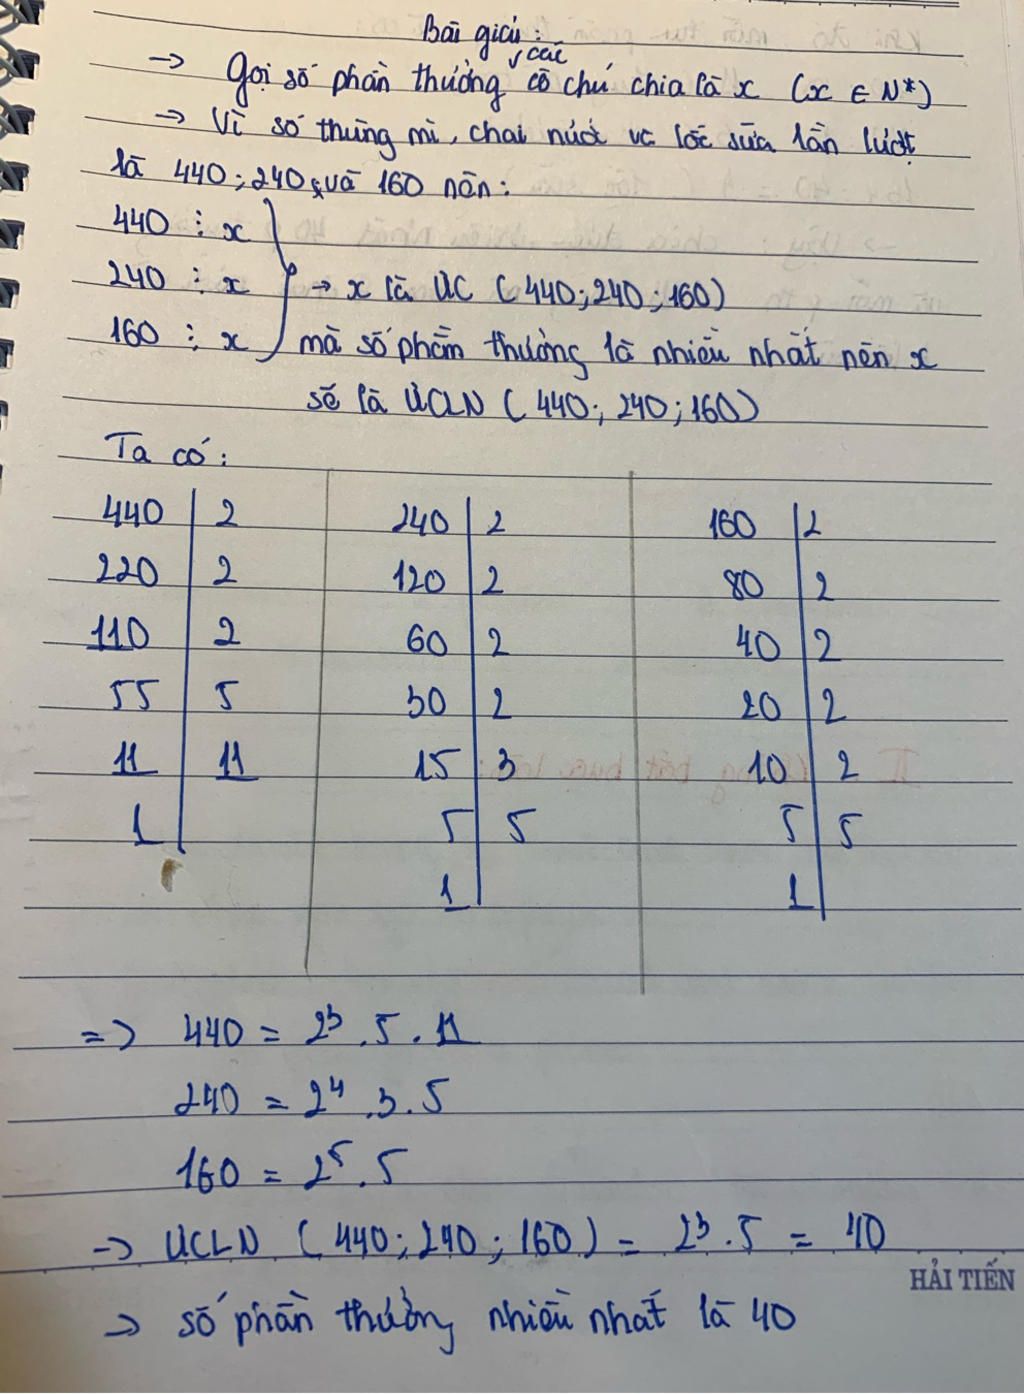 Bài giải:
→ Gọi số phần thưởng các cô chú chia là x (x ∈ N*)
→ Vì số thùng mì, chai nước và lốc sữa lần lượt
là 440; 240 và 160 nên:
440 ⋮ x
240 ⋮ x → x là ƯC (440; 240; 160)
160 ⋮ x mà số phần thưởng là nhiều nhất nên x
sẽ là ƯCLN (440; 240; 160)
Ta có:
440 | 2 240 | 2 160 | 2
220 | 2 120 | 2 80 | 2
110 | 2 60 | 2 40 | 2
55 | 5 30 | 2 20 | 2
11 | 11 15 | 3 10 | 2
1 | 5 | 5 5 | 5
1 | 1 |
=> 440 = 2³ . 5 . 11
240 = 2⁴ . 3 . 5
160 = 2⁵ . 5
→ ƯCLN (440; 240; 160) = 2³ . 5 = 40
HẢI TIẾN
→ số phần thưởng nhiều nhất là 40